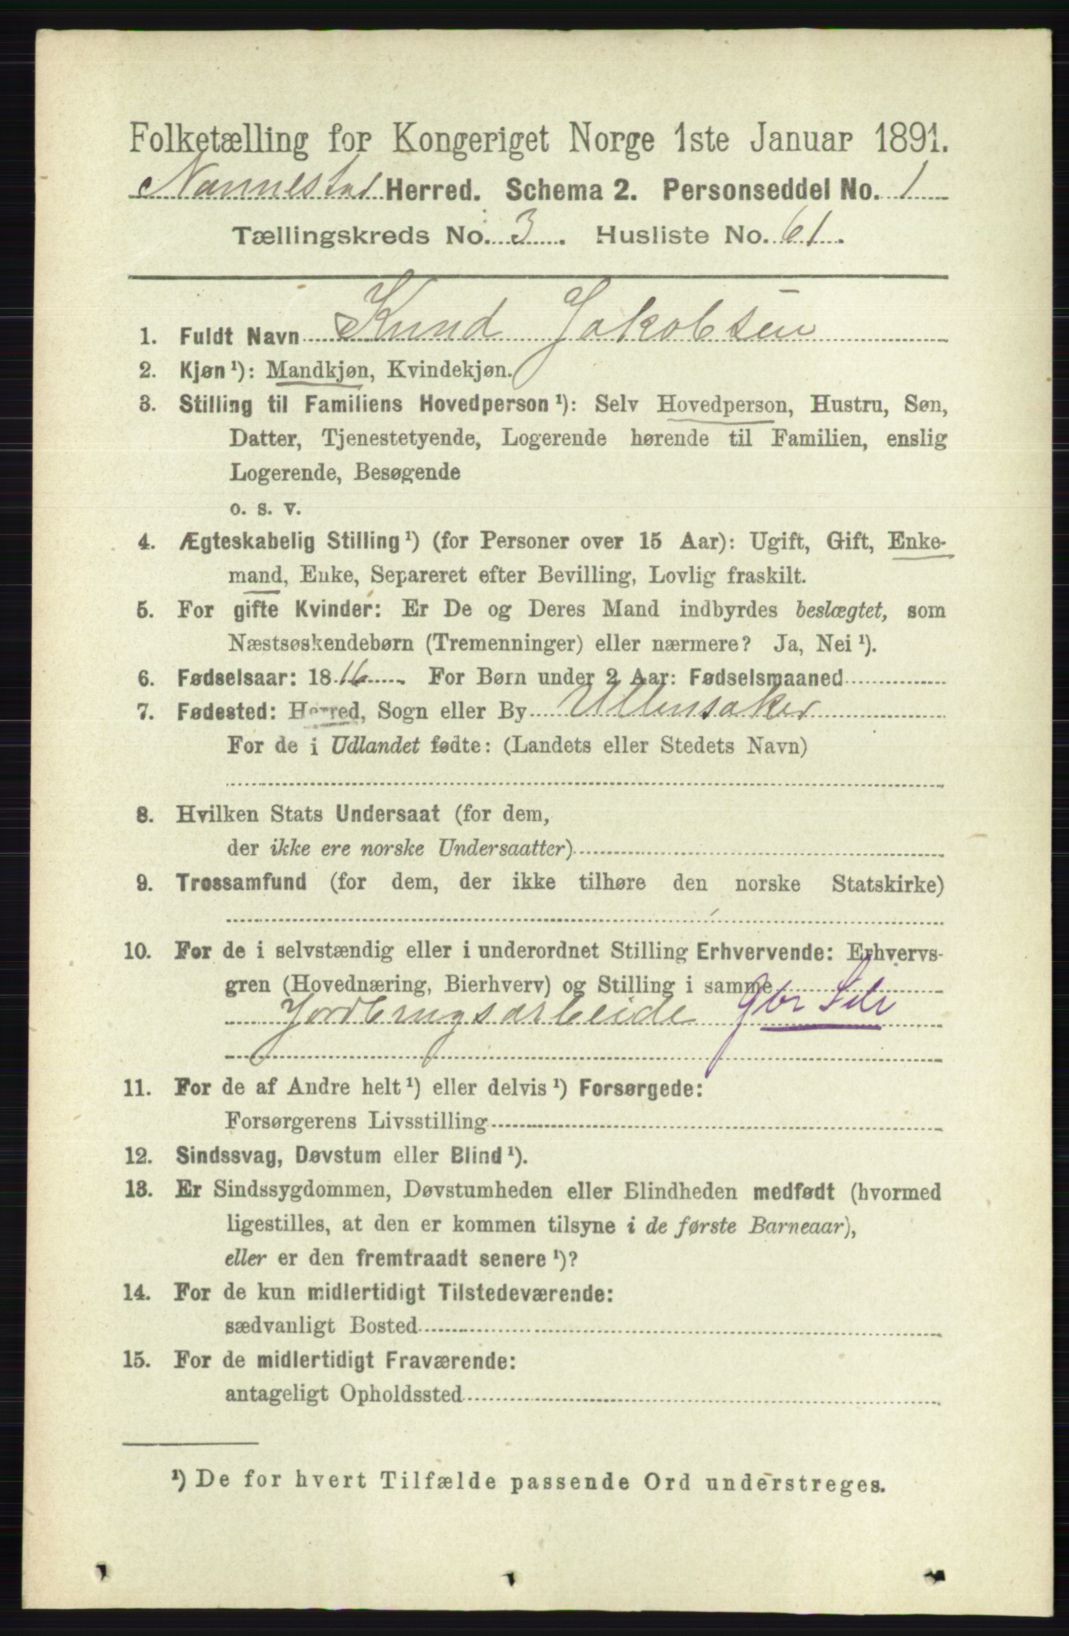 Folketælling for Kongeriget Norge 1ste Januar 1891.
Nannestad Herred. Schema 2. Personseddel No. 1
Tællingskreds No. 3. Husliste No. 61.
1. Fuldt Navn Knud Jakobsen
2. Kjøn ¹): Mandkjøn, Kvindekjøn.
3. Stilling til Familiens Hovedperson ¹): Selv Hovedperson, Hustru, Søn,
Datter, Tjenestetyende, Logerende hørende til Familien, enslig
Logerende, Besøgende
o. s. v.
4. Ægteskabelig Stilling ¹) (for Personer over 15 Aar): Ugift, Gift, Enke-
mand, Enke, Separeret efter Bevilling, Lovlig fraskilt.
5. For gifte Kvinder: Er De og Deres Mand indbyrdes beslægtet, som
Næstsøskendebørn (Tremenninger) eller nærmere? Ja, Nei ¹).
6. Fødselsaar: 1816. For Børn under 2 Aar: Fødselsmaaned
7. Fødested: Herred, Sogn eller By Ullensaker
For de i Udlandet fødte: (Landets eller Stedets Navn)
8. Hvilken Stats Undersaat (for dem,
der ikke ere norske Undersaatter)
9. Trossamfund (for dem, der ikke tilhøre den norske Statskirke)
10. For de i selvstændig eller i underordnet Stilling Erhvervende: Erhvervs-
gren (Hovednæring, Bierhverv) og Stilling i samme
Jordbrugsarbeide Gbr
11. For de af Andre helt ¹) eller delvis ¹) Forsørgede:
Forsørgerens Livsstilling
12. Sindssvag, Døvstum eller Blind ¹).
13. Er Sindssygdommen, Døvstumheden eller Blindheden medfødt (hvormed
ligestilles, at den er kommen tilsyne i de første Barneaar),
eller er den fremtraadt senere ¹)?
14. For de kun midlertidigt Tilstedeværende:
sædvanligt Bosted
15. For de midlertidigt Fraværende:
antageligt Opholdssted
¹) De for hvert Tilfælde passende Ord understreges.